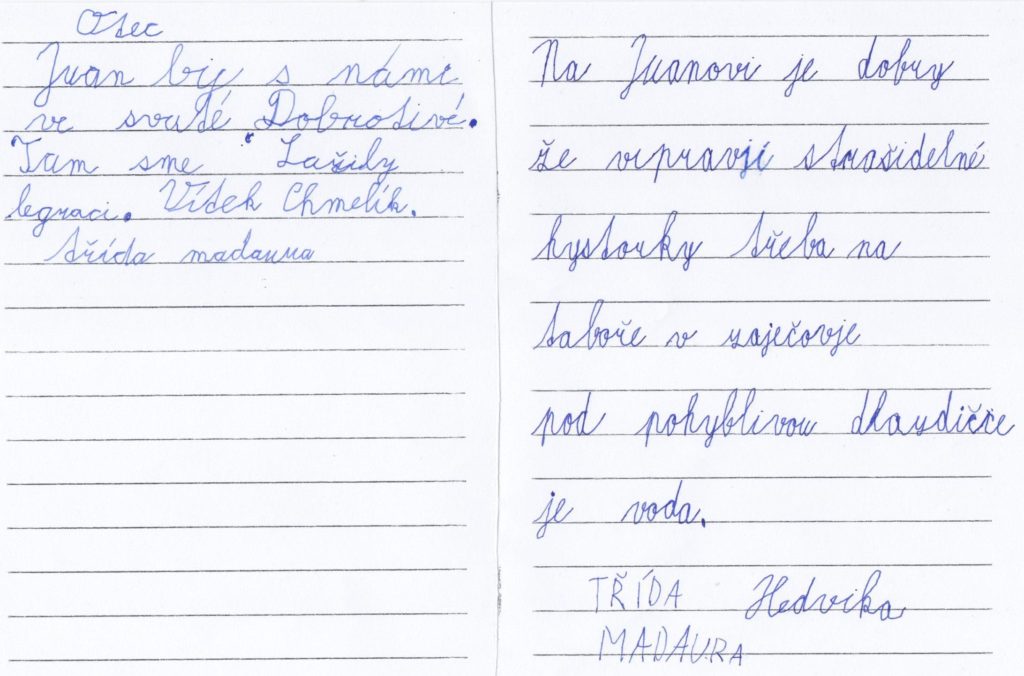 Otec
Juan bil s námi
ve svaté Dobrotivé.
Tam sme Zažily
legraci. Vítek Chmelík.
třída madaura
Na Juanovi je dobrý
že vipravjí strašidelné
hystorky třeba na
taboře v zaječovje
pod pohyblivou dlazdičce
je voda.
TŘÍDA Hedvika
MADAURA